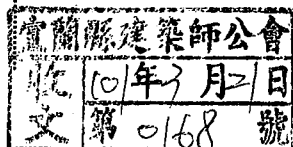 宜蘭縣建築師公會
收文
101年3月21日
第0168號